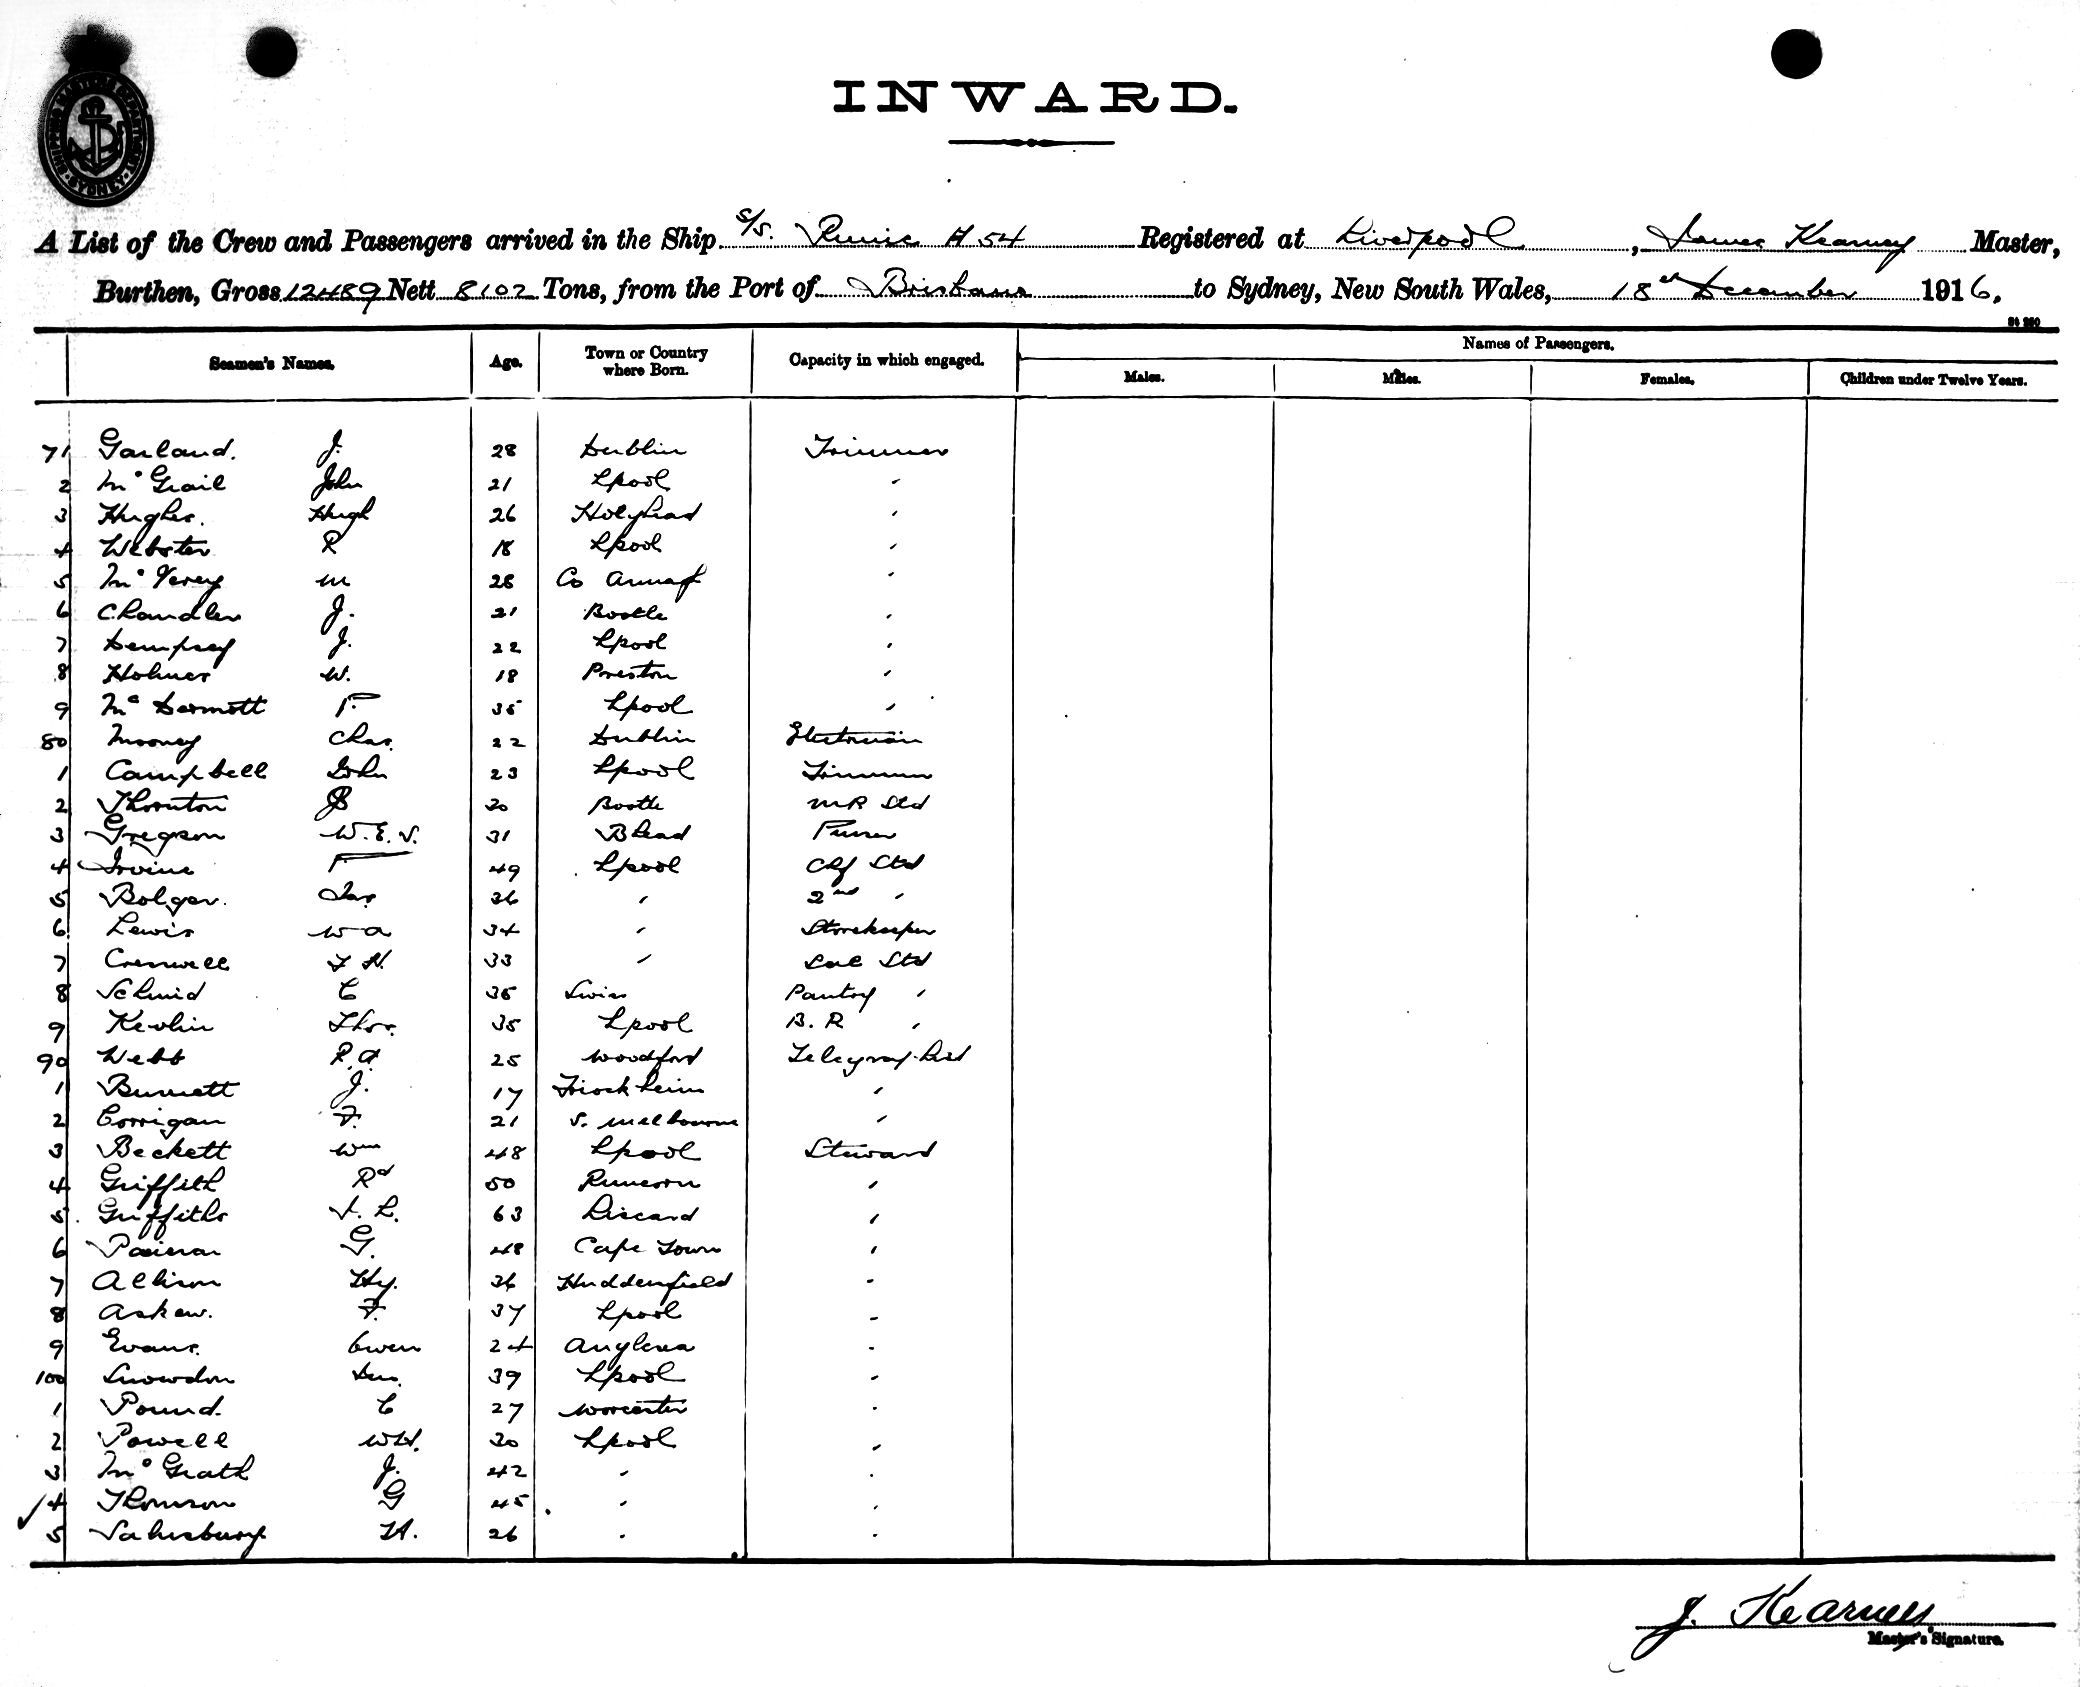 SHIPPING MASTER'S DEPARTMENT SYDNEY
INWARD.
A List of the Crew and Passengers arrived in the Ship s/s. Runic A 54 Registered at Liverpool, James Kearney Master,
Burthen, Gross 12489 Nett 8102 Tons, from the Port of Brisbane to Sydney, New South Wales, 18th December 1916.
Seamen's Names. Age. Town or Country where Born. Capacity in which engaged. Names of Passengers.
Males. Males. Females. Children under Twelve Years.
71 Garland. J. 28 Dublin Trimmer
2 Mc Grail John 21 Lpool "
3 Hughes. Hugh 26 Holyhead "
4 Webster R 18 Lpool "
5 Mc Verey M 28 Co Armagh "
6 Chandler J. 21 Bootle "
7 Dempsey J. 22 Lpool "
8 Holmes W. 18 Preston "
9 Mc Dermott P. 35 Lpool "
80 Mooney Chas. 22 Dublin Electrician
1 Campbell John 23 Lpool Trimmer
2 Thornton 30 Bootle MR Std
3 Gregson W.E.V. 31 Bhead Purser
4 Irvine P. 49 Lpool Chf Std
5 Bolger. Jas. 36 " 2nd "
6 Lewis W A 34 " Storekeeper
7 Cresswell F H. 33 " Sal Std
8 Schmid C 35 Swiss Pantry "
9 Kevlin Thos. 35 Lpool B.R "
90 Webb R.A 25 Woodford Telegraphist
1 Burnett J. 17 Friockheim "
2 Corrigan F. 21 S. Melbourne "
3 Beckett Wm 48 Lpool Steward
4 Griffith Rd 50 Runcorn "
5 Griffiths J. L. 63 Liscard "
6 G. 48 Cape Town "
7 Allison Hy. 36 Huddersfield "
8 Askew. F. 37 Lpool "
9 Evans. Owen 24 Anglesea "
100 Snowdon 39 Lpool "
1 Pound. C 27 Worcester "
2 Powell WH. 30 Lpool "
3 Mc Grath J. 42 " "
4 Thomson G 45 " "
5 Salusbury H. 26 " "
J. Kearney
Master's Signature.